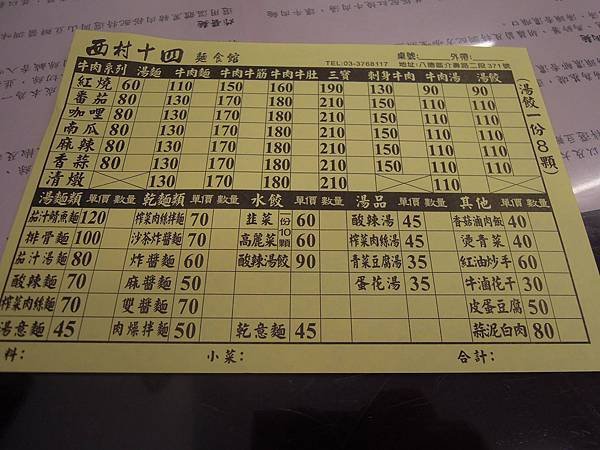 西村十四 麵食館 桌號: 外帶:
TEL:03-3768117 地址:八德區介壽路二段371號
牛肉系列 湯麵 牛肉麵 牛肉牛筋 牛肉牛肚 三寶 刺身牛肉 牛肉湯 湯餃
紅燒 60 110 150 160 190 130 90 90
番茄 80 130 170 180 210 150 110 110
咖哩 80 130 170 180 210 150 110 110
南瓜 80 130 170 180 210 150 110 110
麻辣 80 130 170 180 210 150 110 110
香蒜 80 130 170 180 210 150 110 110
清燉 130 170 180 210 110
(湯餃一份8顆)
湯麵類 單價 數量 乾麵類 單價 數量 水餃 單價 數量 湯品 單價 數量 其他 單價 數量
茄汁鯖魚麵 120 榨菜肉絲拌麵 70 韭菜 份10顆 60 酸辣湯 45 香菇滷肉飯 40
排骨麵 100 沙茶炸醬麵 70 高麗菜 60 榨菜肉絲湯 45 燙青菜 40
茄汁湯麵 80 炸醬麵 60 酸辣湯餃 90 青菜豆腐湯 35 紅油炒手 60
酸辣麵 70 麻醬麵 50 蛋花湯 35 牛滷花干 30
榨菜肉絲麵 70 雙醬麵 70 皮蛋豆腐 50
湯意麵 45 肉燥拌麵 50 乾意麵 45 蒜泥白肉 80
料: 小菜: 合計: